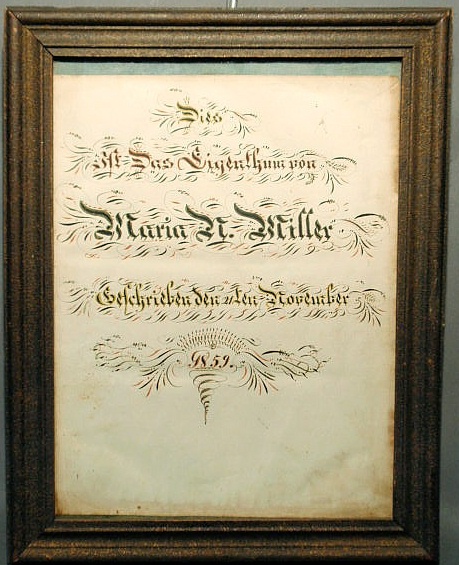 Dies
Ist Das Eigenthum von
Maria N. Miller
Geschrieben den ten November
1859.